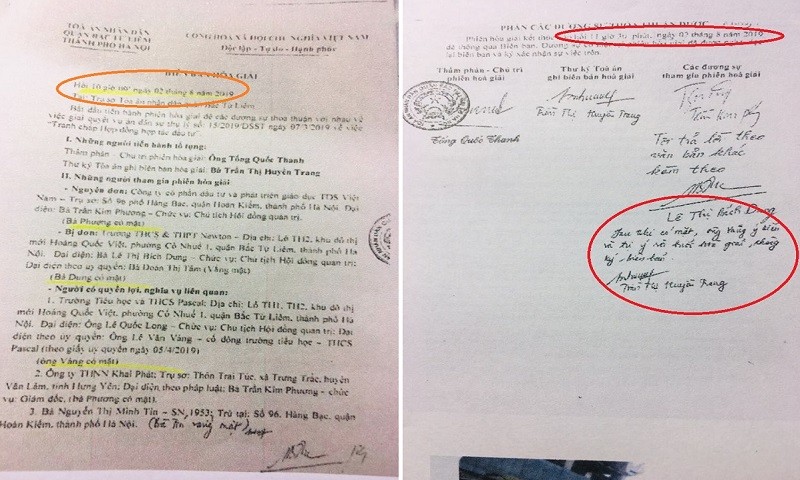 TOÀ ÁN NHÂN DÂN
QUẬN BẮC TỪ LIÊM
THÀNH PHỐ HÀ NỘI
CỘNG HOÀ XÃ HỘI CHỦ NGHĨA VIỆT NAM
Độc lập - Tự do - Hạnh phúc
BIÊN BẢN HÒA GIẢI
Hồi 10 giờ 00' ngày 02 tháng 8 năm 2019
Tại: Trụ sở Toà án nhân dân quận Bắc Từ Liêm
Bắt đầu tiến hành phiên hòa giải để các đương sự thoả thuận với nhau về
việc giải quyết vụ án dân sự thụ lý số: 15/2019/DSST ngày 07/3/2019 về việc
"Tranh chấp Hợp đồng hợp tác đầu tư".
I. Những người tiến hành tố tụng:
Thẩm phán - Chủ trì phiên hòa giải: Ông Tống Quốc Thanh
Thư ký Toà án ghi biên bản hòa giải: Bà Trần Thị Huyền Trang
II. Những người tham gia phiên hòa giải:
- Nguyên đơn: Công ty cổ phần đầu tư và phát triển giáo dục TDS Việt
Nam – Trụ sở: Số 96 phố Hàng Bạc, quận Hoàn Kiếm, thành phố Hà Nội. Đại
diện: Bà Trần Kim Phương – Chức vụ: Chủ tịch Hội đồng quản trị.
(Bà Phương có mặt)
- Bị đơn: Trường THCS & THPT Newton – Địa chỉ: Lô TH2, khu đô thị
mới Hoàng Quốc Việt, phường Cổ Nhuế 1, quận Bắc Từ Liêm, thành phố Hà
Nội. Đại diện: Bà Lê Thị Bích Dung – Chức vụ: Chủ tịch Hội đồng quản trị;
Đại diện theo ủy quyền: Bà Đoàn Thị Tâm (Vắng mặt)
(Bà Dung có mặt)
- Người có quyền lợi, nghĩa vụ liên quan:
1. Trường Tiểu học và THCS Pascal; Địa chỉ: Lô TH1, TH2, khu đô thị
mới Hoàng Quốc Việt, phường Cổ Nhuế 1, quận Bắc Từ Liêm, thành phố Hà
Nội. Đại diện: Ông Lê Quốc Long – Chức vụ: Chủ tịch Hội đồng quản trị; Đại
diện theo ủy quyền: Ông Lê Văn Vàng – cổ đông trường tiểu học – THCS
Pascal (theo giấy uỷ quyền ngày 05/4/2019)
(ông Vàng có mặt)
2. Công ty TNHH Khai Phát; Trụ sở: Thôn Trai Túc, xã Trưng Trắc, huyện
Văn Lâm, tỉnh Hưng Yên; Đại diện theo pháp luật: Bà Trần Kim Phương - chức
vụ: Giám đốc, (bà Phương có mặt).
3. Bà Nguyễn Thị Minh Tín – SN 1953; Trú tại: Số 96, Hàng Bạc, quận
Hoàn Kiếm, thành phố Hà Nội. (Bà Tín vắng mặt)
PHẦN CÁC ĐƯƠNG SỰ THOẢ THUẬN ĐƯỢC
Phiên hòa giải kết thúc vào hồi 11 giờ 30 phút, ngày 02 tháng 8 năm 2019
Thẩm phán - Chủ trì
phiên hoà giải
Thư ký Toà án
ghi biên bản hoà giải
Các đương sự
tham gia phiên hoà giải
Trần Thị Huyền Trang
Trần Kim Phương
Tống Quốc Thanh
Tôi trả lời theo
văn bản khác
kèm theo
Lê Thị Bích Dung
Trần Thị Huyền Trang